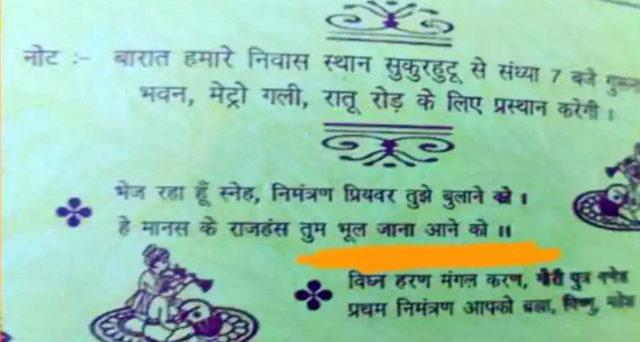 नोट :- बारात हमारे निवास स्थान सुकुरहुटू से संध्या 7 बजे
भवन, मेट्रो गली, रातू रोड़ के लिए प्रस्थान करेगी ।
भेज रहा हूँ स्नेह, निमंत्रण प्रियवर तुझे बुलाने को ।
हे मानस के राजहंस तुम भूल जाना आने को ॥
विघ्न हरण मंगल करण, गौरी पुत्र गणेश
प्रथम निमंत्रण आपको ब्रह्मा, विष्णु, महेश